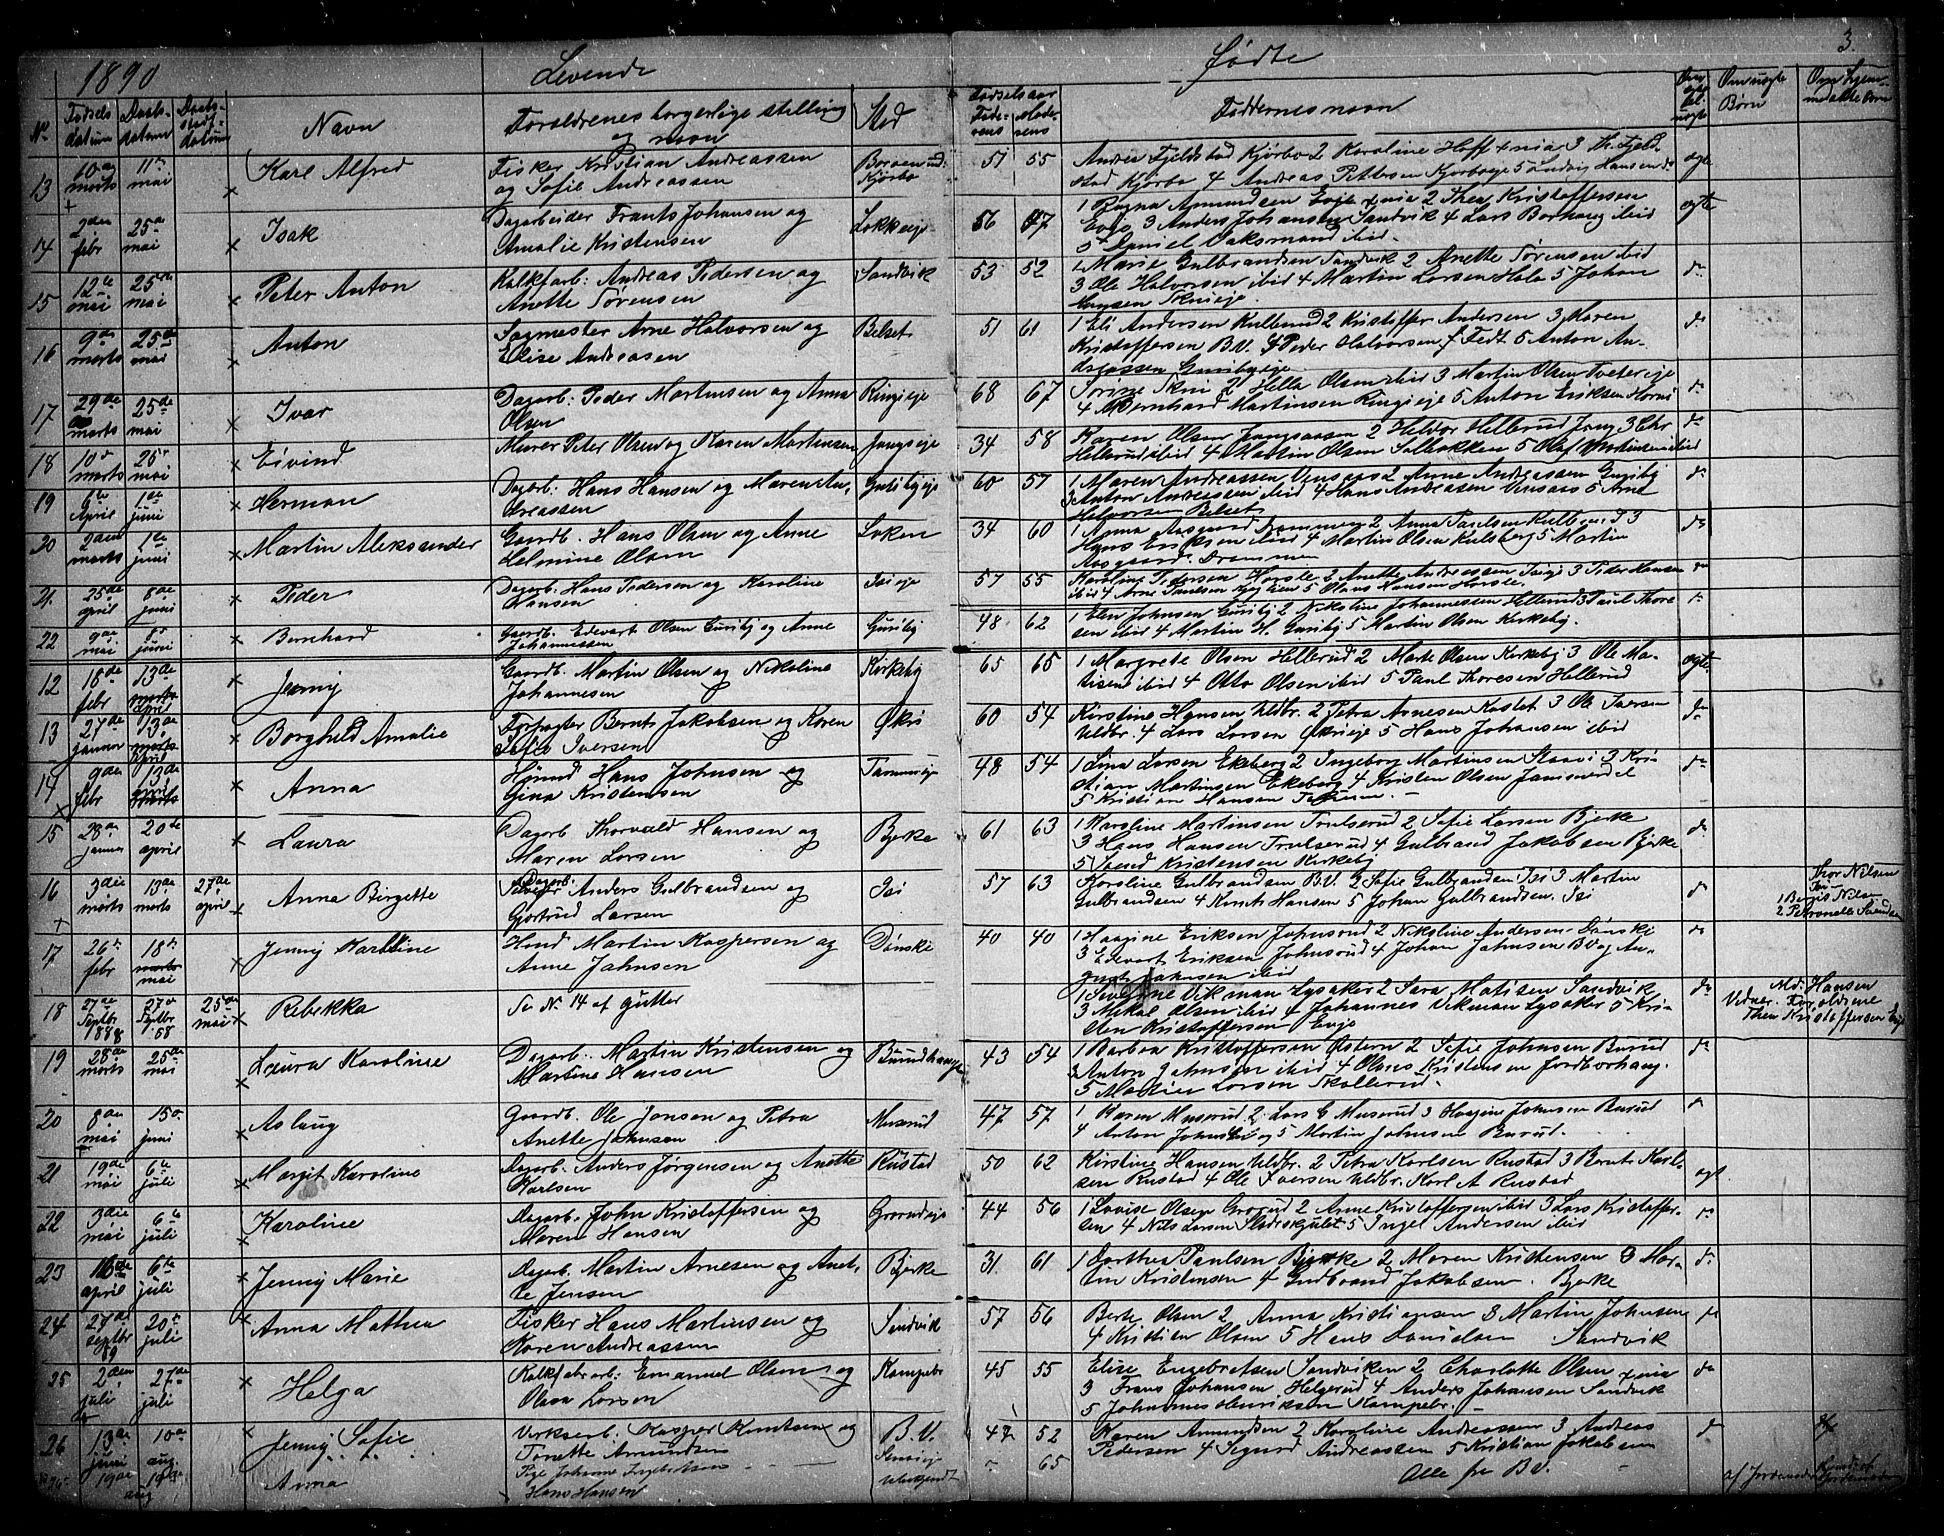 1890 Levende Fødte 3.
No Fødsels datum Daabs datum Daabs stadf. datum Navn Forældrenes borgerlige stilling og navn Sted Fødselsaar Faderens Moderens Faddernes navn Om ægte el. uægte Om uægte Børn Om hjemmedøbte børn
13 10de marts 11te mai Karl Alfred Fisker Kristian Andreassen 51 55
og Sofie Andreassen Kjørbo ægte
stad Kjørbo 4 Andreas Pettersen Kjørboeje 5 Ludvig Hansen do
14 2den febr 25de mai Isak Dagarbeider Frants Johansen og Løkkeeje 56 47 1 Ragna Amundsen Evje 2 Thea Kristoffersen ægte
Amalie Kristensen Evje 3 Anders Johansen Sandvik 4 Lars Borhaug ibid
5 Daniel Vaksmand ibid.
15 12te mai 25de mai Peter Anton Kalkfarb: Andreas Pedersen og Sandvik 53 52 1 Marie Gulbrandsen Sandvik 2 Anette Sørensen ibid do
Anette Sørensen 3 Ole Halvorsen ibid 4 Martin Larsen Hole 5 Johan
Hansen Skuieje
16 9de marts 25de mai Anton Sagmester Arne Halvorsen og Belset 51 61 1 Eli Andersen Kulbund 2 Kristoffer Andersen 3 Maren do
Elise Andreasen Kristoffersen B.V. 4 Peder Halvorsen 5 Anton An-
dreassen Gusibyeje
17 29de marts 25de mai Ivar Dagarb: Peder Martinsen og Anna Ringieje 68 67 Skui 2 Helle Olsen ibid 3 Martin Olsen Toetereje do
Olsen 4 Bernhard Martinsen Ringieje 5 Anton Eriksen Horni
18 10de marts 26de mai Eivind Murer Peter Olsen og Karen Martinsen Jongseje 34 58 Karen Olsen Jongsaasen 2 Heldor Hellerud Jong 3 Chr do
Hellerud ibid 4 Martin Olsen Solløkken 5 Olaf Martinsen ibid
19 6te April 1ste juni Herman Dagarb: Hans Hansen og Maren An- Gusibyeje 60 57 1 Maren Andreassen Vensaas 2 Anne Andreassen Gusiby do
dreassen 3 Anton Andreassen ibid 4 Hans Andreassen Vensaas 5 Arne
Halvorsen Belset
20 2den marts 1ste juni Martin Aleksander Gaardb. Hans Olsen og Anne Løken 34 60 1 Anna Aasgaard Drammen 2 Anna Paulsen 3 do
Helmine Olsen Hans Eriksen ibid 4 Martin Olsen Kulsberg 5 Martin
Aasgaard Drammen
21. 25de april 8de juni Peder Dagarb: Hans Pedersen og Karoline Isieje 57 55 Karoline Pedersen Horsle 2 Anette Andreassen Isieje 3 Peder Hansen do
Hansen ibid 4 Arne Paulsen 5 Olaus Hansen Horsle
22 9de mai 8de juni Bernhard Gaardb. Edevart Olsen Gusiby og Anne Gusiby 48 62 1 Elen Johnsen Gusiby 2 Nikoline Johannessen Hellerud 3 Paul Thore
Johannessen sen ibid 4 Martin H. Gusiby 5 Martin Olsen Kirkeby.
12 18de febr 13de april Jenny Gaardb. Martin Olsen og Nikoline Kirkeby 65 65 1 Margrete Olsen Hellerud 2 Marte Olsen Kirkeby 3 Ole Ma- ægte
Johannesen tisen ibid 4 Otto Olsen ibid 5 Paul Thoresen Hellerud
13 27de januar 13de april Borghild Amalie Forpagter Bernt Jakobsen og Karen Økri 60 54 Kirstine Hansen Uldbr. 2 Petra Arnesen Kastet 3 Ole Iversen do
Sofie Iversen Uldbr. 4 Lars Larsen Økrieje 5 Hans Johansen ibid
14 9de febr 13de april Anna Hjmd Hans Johnsen og 48 54 1 Lina Larsen Ekeberg 2 Ingeborg Martinsen Staavi 3 Kri- do
Gina Kristensen stian Martinsen Ekeberg 4 Kristen Olsen
5 Kristian Hansen
15 28de januar 20de april Laura Dagarb Thorvald Hansen og Bjerke 61 63 1 Karoline Martinsen Trulserud 2 Sofie Larsen Bjerke do
Maren Larsen 3 Hans Hansen Trulserud 4 Gulbrand Jakobsen Bjerke
5 Svend Kristensen Kirkeby
16 3die marts 13de marts 27de april Anna Birgette Dagarb. Anders Gulbrandsen og Isi 57 63 Karoline Gulbrandsen B.V. 2 Sofie Gulbrandsen Isi 3 Martin do Thor Nilsen Isi
Gjertrud Larsen Gulbrandsen 4 Knut Hansen 5 Johan Gulbrandsen. Isi 1 Bergit Nilsen
2 Petronelle Svendsen
17 26de febr 18de mai Jenny Karoline Hmd Martin Kaspersen og Dønski 40 40 1 Haagine Eriksen Johnsrud 2 Nikoline Andersen Dønski do
Anne Jahnsen 3 Edevart Eriksen Johnsrud 4 Johan Jahnsen BV og Au-
gust Jahnsen ibid
18 27de Septbr 1888 27de Septbr 88 25de mai Rebekka Se No. 14 af gutter 1 Severine Vikman Lysaker 2 Sara Matisen Sandvik do Md. Hansen
3 Mikal Olsen ibid 4 Johannes Vikman Lysaker 5 Kri- Vidner: Forældrene
sten Kristoffersen Evje Thea Kristoffersen Evje
19 28de marts 25de mai Laura Karoline Dagarb. Martin Kristensen og 43 54 1 Barbra Kristoffersen Østern 2 Sofie Johnsen Burud do
Martine Hansen 3 Anton Johnsen ibid 4 Olaus Kristensen Jordbærhaug.
5 Martin Larsen Skollerud.
20 8de mai 15de juni Aslaug Gaardb. Ole Jonsen og Petra Muserud 47 57 1 Karen Muserud 2 Lars C Muserud 3 Haagine Johnsen Burud
Anette Johnsen 4 Anton Johnsen og 5 Martin Johnsen Burud.
21 19de mai 6te juli Margit Karoline Dagarb. Anders Jørgensen og Anette Rustad 50 62 Kirstine Hansen Uldbr. 2 Petra Karlsen Rustad 3 Bernt Karl- ægt
Karlsen sen Rustad 4 Ole Iversen Uldbr. Karl A Rustad
22 3die mai 6te juli Karoline Dagarb. John Kristoffersen og Grorudeje 44 56 1 Lovise Olsen Grorud 2 Anne Kristoffersen ibid 3 Lars Kristoffer- do
Maren Hansen sen 4 Nils Larsen 5 Ingel Andersen ibid
23 april 6te juli Jenny Marie Dagarb. Martin Arnesen og Anet- Bjerke 31 61 1 Dorthea Paulsen Bjerke 2 Maren Kristensen 3 Mar- do
te Jensen tin Kristensen 4 Gudbrand Jakobsen. Bjerke
24 27de septbr 89 20de juli Anna Mathea Fisker Hans Martinsen og Sandvik 57 56 Berte Olsen 2 Anna Kristiansen 3 Martin Johnsen do
Karen Andreassen 4 Kristian Olsen 5 Hans Danielsen Sandvik
25 2den juli 27de juli Helga Kalkfabrarb: Emanuel Olsen og Kampebr 45 55 Elise Engebretsen Sandviken 2 Charlotte Olsen do
Olava Larsen 3 Frans Johansen Helgerud 4 Anders Johansen Sandvik
5 Johannes Henriksen Kampebr.
26 13de juni 10de aug. Jenny Sofie Verksarb. Kasper Knutsen og B.V. 47 52 Karen Amundsen 2 Karoline Andreassen 3 Andreas do
Tonette Amundsen Pedersen 4 Sigurd Andreassen 5 Kristian Jakobsen
19de aug Anna Pige Johanne 65 Alle fra B.V.
Hans Hansen Ubekjendt af Jordemoder